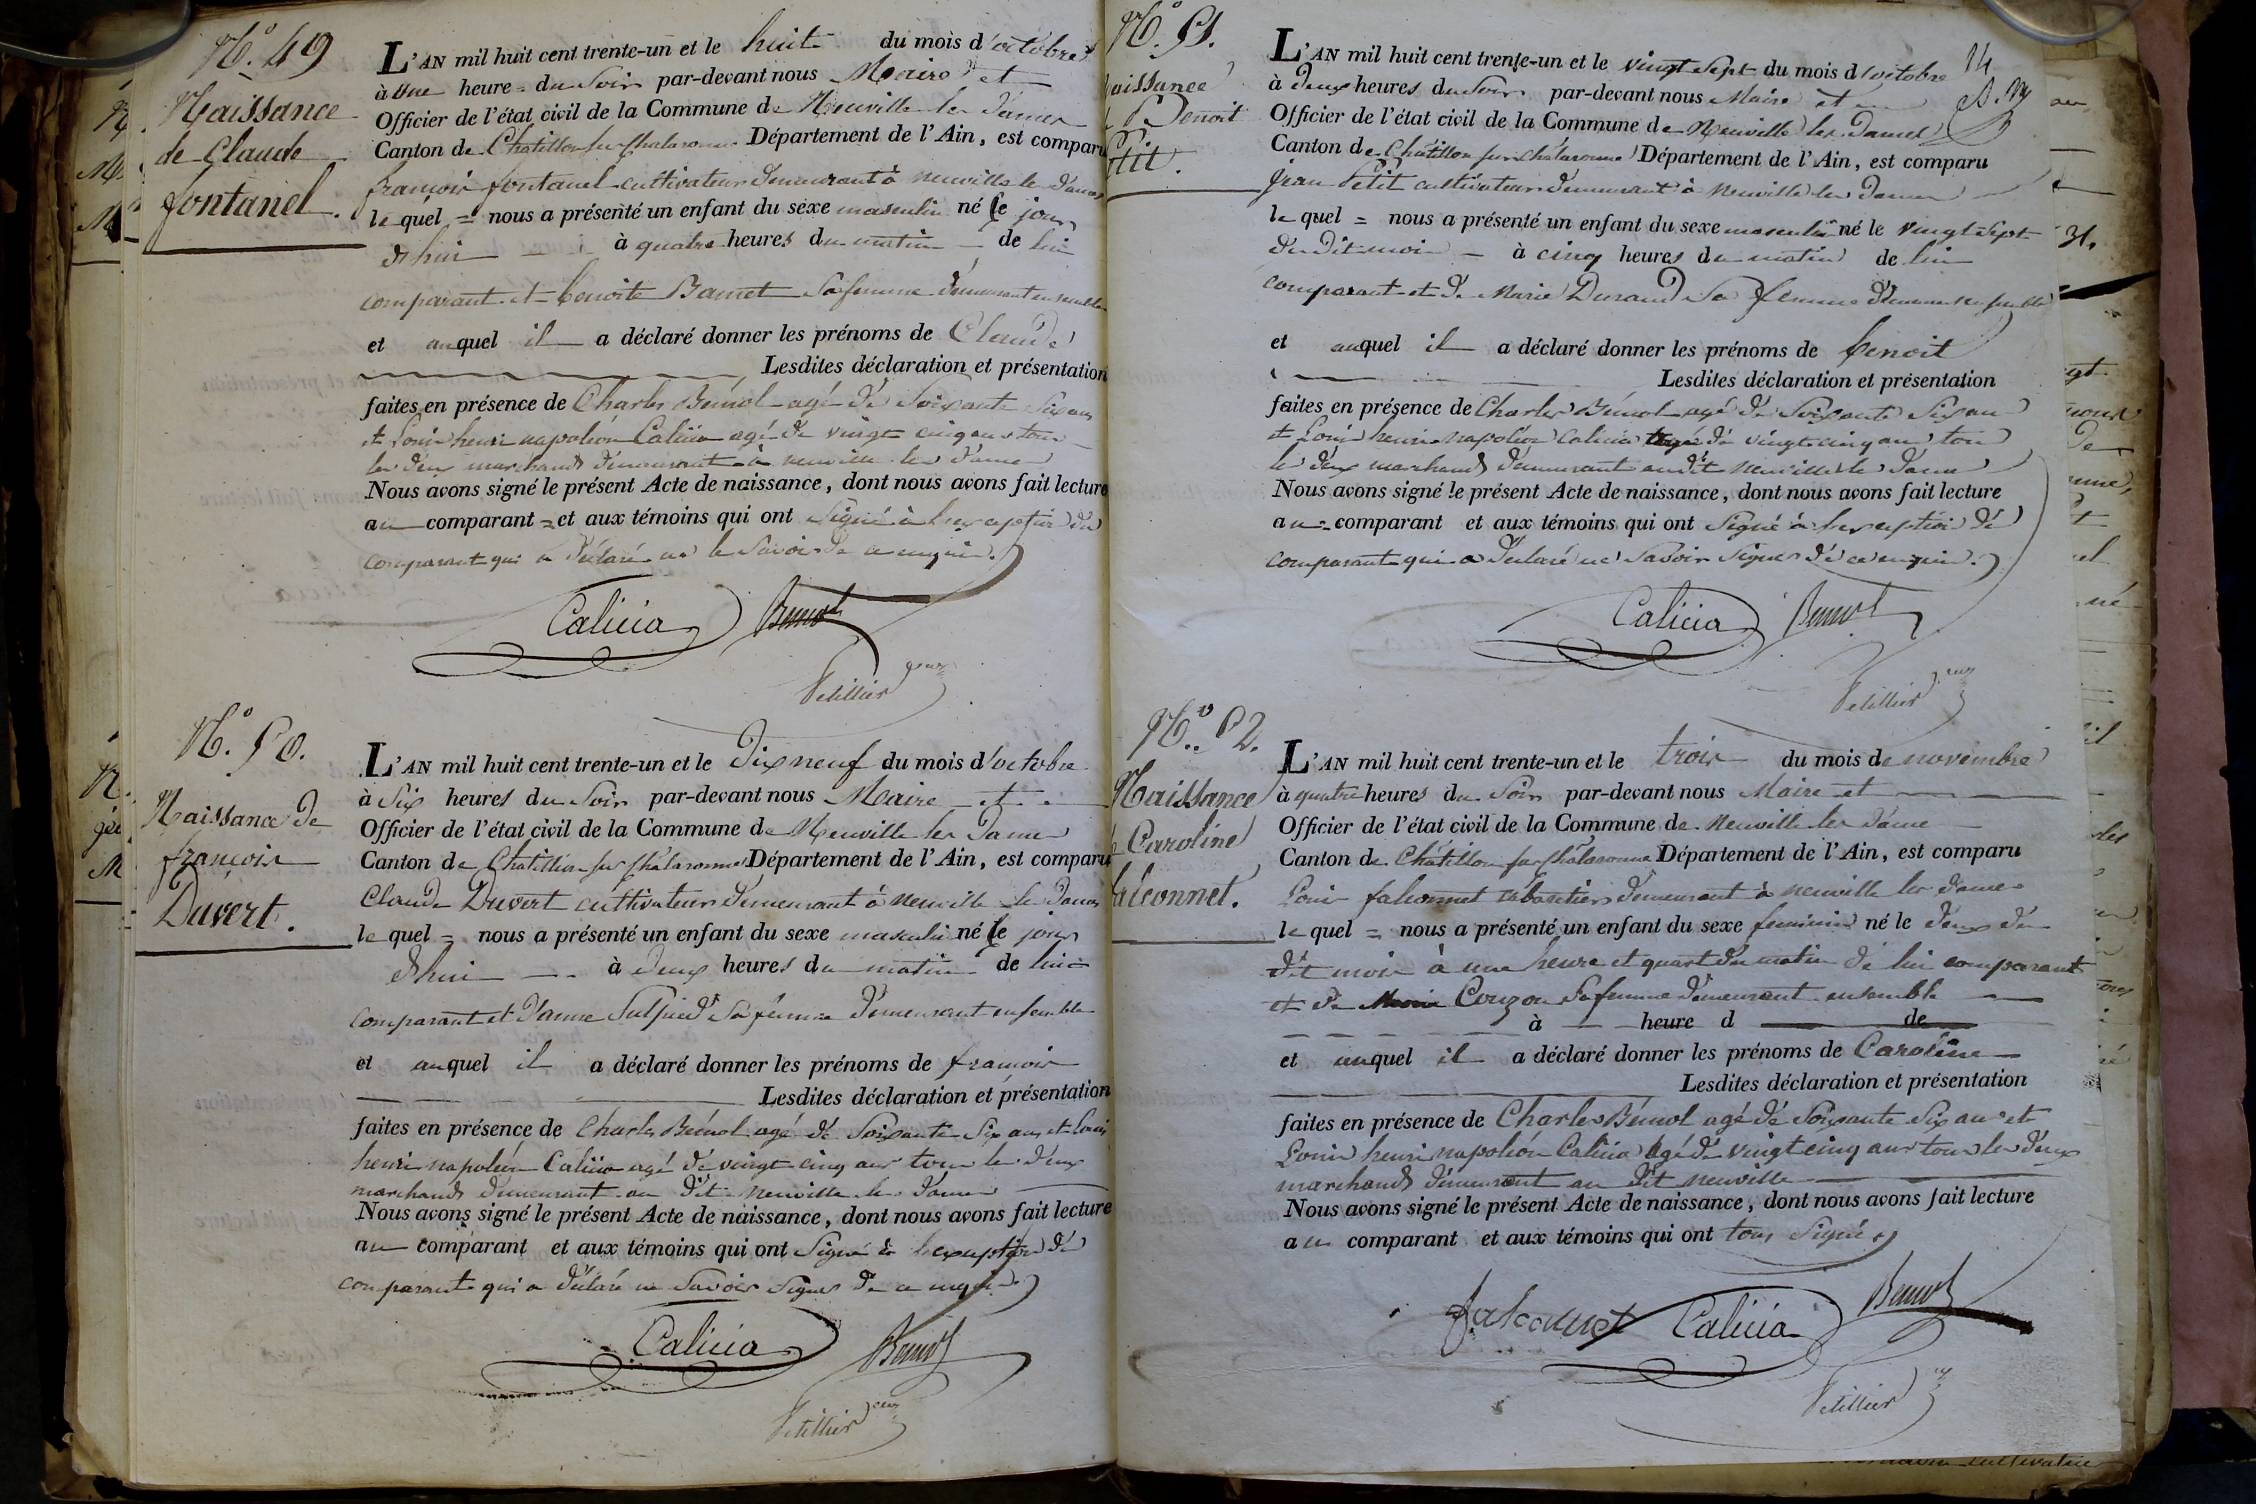 No. 49
Naissance
de Claude
fontanel.
L'AN mil huit cent trente-un et le huit du mois d'octobre
à une heure du soir par-devant nous Maire et
Officier de l'état civil de la Commune de Neuville les dames
Canton de Chatillon sur Chalaronne Département de l'Ain, est comparu
françois fontanel cultivateur demeurant à neuville les dames
le quel = nous a présenté un enfant du sexe masculin né le jour
d'hui à quatre heures du matin de lui
comparant et benoite Bamet sa femme demeurant ensemble
et auquel il a déclaré donner les prénoms de Claude
Lesdites déclaration et présentation
faites en présence de Charles Bémol agé de soixante six ans
et Louis henri napoléon Calicia agé de vingt cinq ans tous
les deux marchands demeurant à neuville les dames
Nous avons signé le présent Acte de naissance, dont nous avons fait lecture
au comparant = et aux témoins qui ont signé à l'exception du
comparant qui a déclaré ne le savoir de ce enquis.
Calicia
No. 50.
Naissance de
françois
Duvert.
L'AN mil huit cent trente-un et le dix neuf du mois d'octobre
à six heures du soir par-devant nous Maire et
Officier de l'état civil de la Commune de Neuville les dames
Canton de Chatillon sur Chalaronne Département de l'Ain, est comparu
Claude Duvert cultivateur demeurant à neuville les dames
le quel = nous a présenté un enfant du sexe masculin né le jour
d'hui à deux heures du matin de lui
comparant et d'anne sa femme demeurant ensemble
et auquel il a déclaré donner les prénoms de françois
Lesdites déclaration et présentation
faites en présence de Charles Bémol agé de soixante six ans et Louis
henri napoléon Calicia agé de vingt cinq ans tous les deux
marchands demeurant au dit neuville les dames
Nous avons signé le présent Acte de naissance, dont nous avons fait lecture
au comparant et aux témoins qui ont signé à l'exception du
comparant qui a déclaré ne savoir signer de ce enquis
Calicia
No. 51.
aissance
Benoit
tit.
L'AN mil huit cent trente-un et le vingt sept du mois d'octobre
14
à deux heures du soir par-devant nous Maire et
Officier de l'état civil de la Commune de Neuville les dames
Canton de Chatillon sur Chalaronne Département de l'Ain, est comparu
jean Petit cultivateur demeurant à neuville les dames
le quel = nous a présenté un enfant du sexe masculin né le vingt sept
du dit mois à cinq heures du matin de lui
comparant et de Marie Durand sa femme demeurant ensemble
et auquel il a déclaré donner les prénoms de benoit
Lesdites déclaration et présentation
faites en présence de Charles Bémol agé de soixante six ans
et Louis henri napoléon Calicia agé de vingt cinq ans tous
les deux marchands demeurant au dit neuville les dames
Nous avons signé le présent Acte de naissance, dont nous avons fait lecture
au = comparant et aux témoins qui ont signé à l'exception du
comparant qui a déclaré ne savoir signer de ce enquis.
Calicia
No. 52.
Naissance
Caroline
falconnet.
L'AN mil huit cent trente-un et le trois du mois de novembre
à quatre heures du soir par-devant nous Maire et
Officier de l'état civil de la Commune de Neuville les dames
Canton de Châtillon sur Chalaronne Département de l'Ain, est comparu
Louis falconnet demeurant à neuville les dames
le quel = nous a présenté un enfant du sexe feminin né le deux du
dit mois à une heure et quart du matin de lui comparant
et de Couzon sa femme demeurant ensemble
à heure d de
et auquel il a déclaré donner les prénoms de Caroline
Lesdites déclaration et présentation
faites en présence de Charles Bémol agé de soixante six ans et
Louis henri napoléon Calicia agé de vingt cinq ans tous les deux
marchands demeurant au dit neuville
Nous avons signé le présent Acte de naissance, dont nous avons fait lecture
au comparant et aux témoins qui ont tous signé
falconnet Calicia